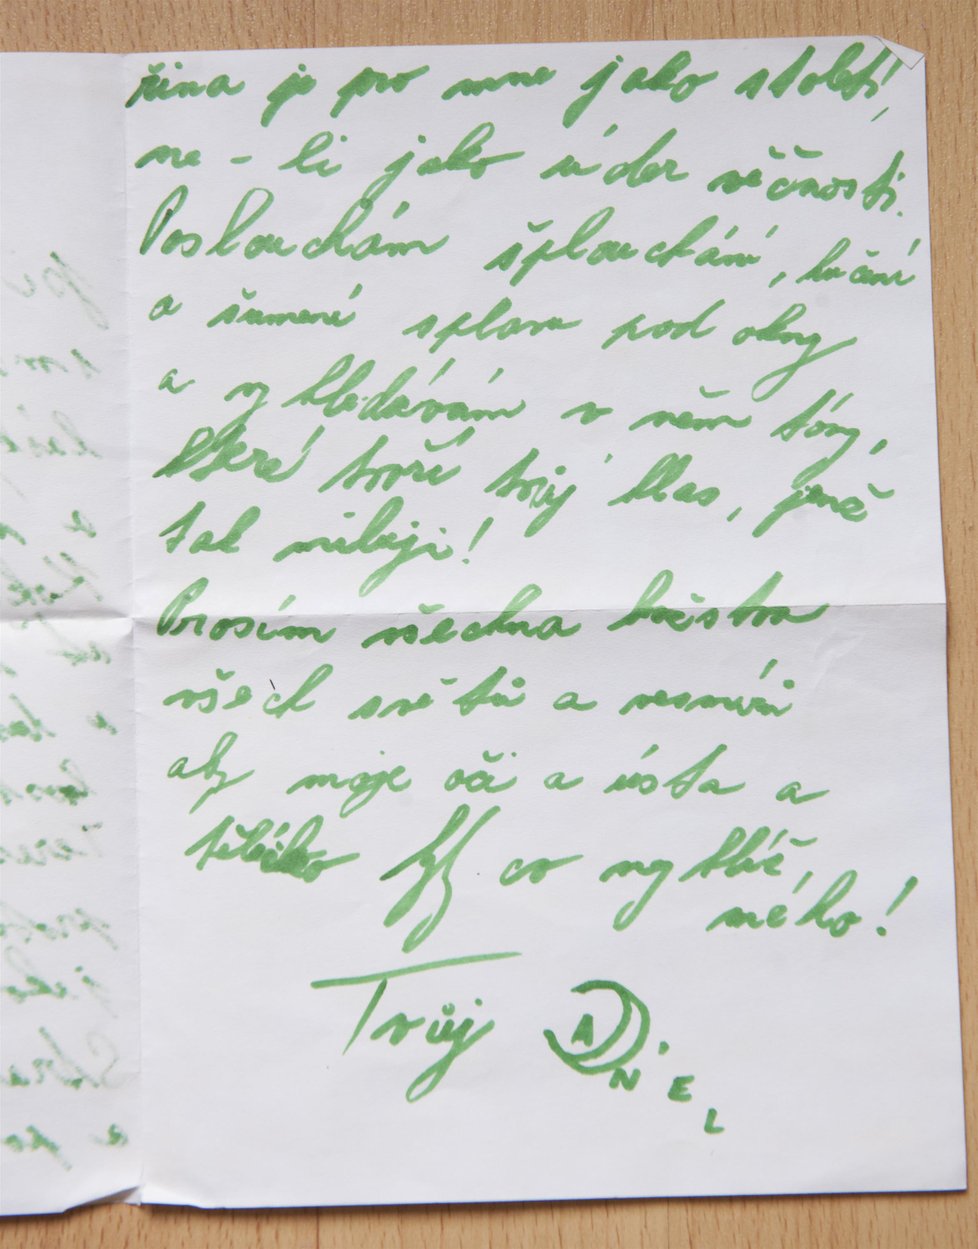 řina je pro mne jako století,
ne-li jako úder věčnosti.
Poslouchám šplouchání, hučení
a šumění splavu pod okny
a vyhledávám v něm tóny,
které tvoří tvůj hlas, jenž
tak miluji!
Prosím všechna božstva
všech světů a vesmírů
aby moje oči a ústa a
tělíčko byly co nejblíž,
mého!
Tvůj DANIEL